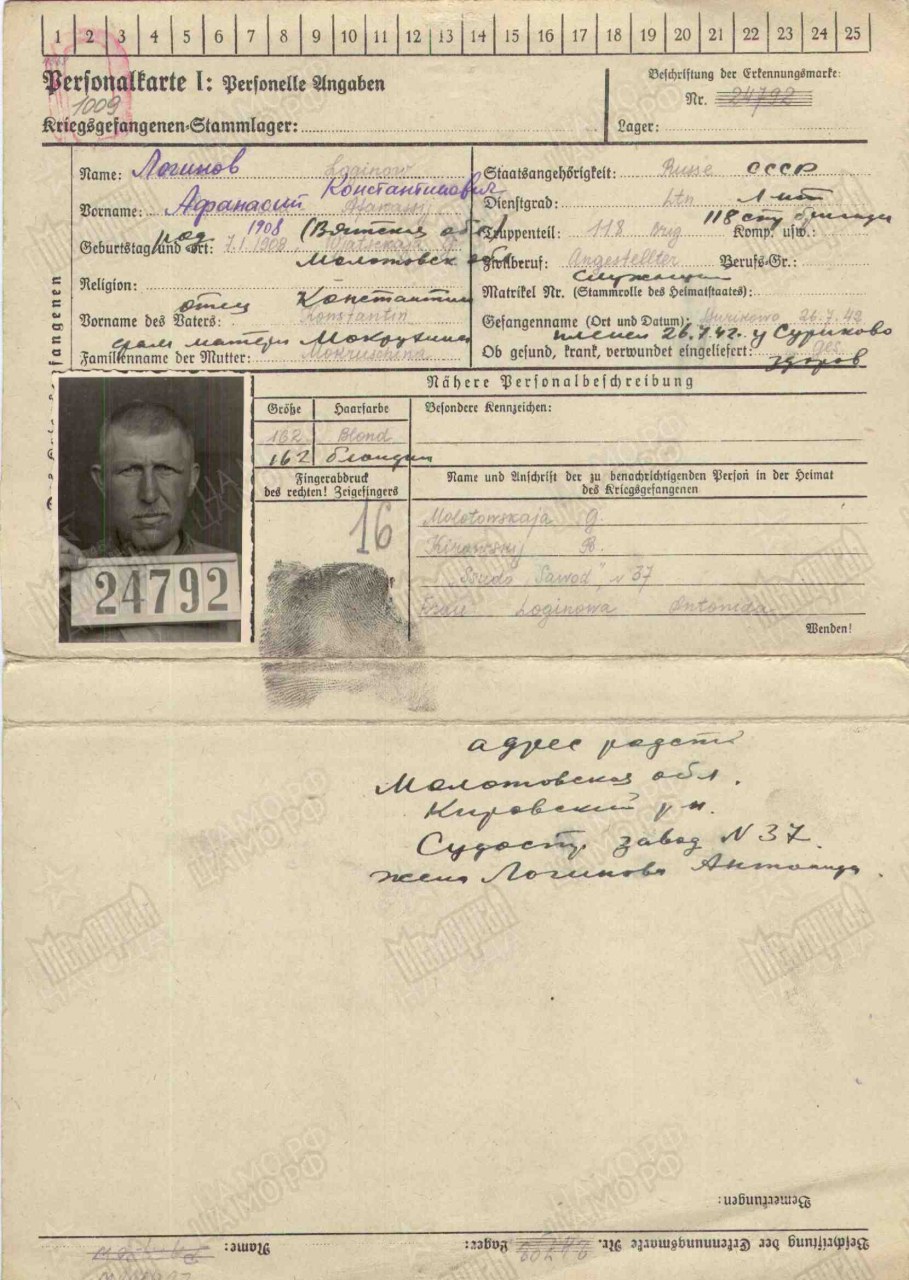 1 2 3 4 5 6 7 8 9 10 11 12 13 14 15 16 17 18 19 20 21 22 23 24 25
Personalkarte I: Personelle Angaben
1009
Kriegsgefangenen-Stammlager:
Beschriftung der Erkennungsmarke:
Nr. 24792
Lager:
Name: Логинов Loginow
Константинович
Vorname: Афанасий Afanassij
1908 (Вятская обл.
Geburtstag und -ort: 7.1.1908 Wjatskaja
род. Молотовск обл
Religion:
отец Константин
Vorname des Vaters: Konstantin
фам матери Мокрушина
Familienname der Mutter: Mokruschina
Staatsangehörigkeit: Russe СССР
Dienstgrad: Ltn Л-нт
118 стр бригады
Truppenteil: 118 Brig Komp. usw.:
Zivilberuf: Angestellter Berufs-Gr.:
Служащий
Matrikel Nr. (Stammrolle des Heimatstaates):
Gefangenname (Ort und Datum): Surikowo 26.7.42
пленен 26.7.42. у Суриково
Ob gesund, krank, verwundet eingeliefert: ges.
здоров
Nähere Personalbeschreibung
Größe Haarfarbe Besondere Kennzeichen:
162 Blond
162 блондин
Fingerabdruck
des rechten! Zeigefingers
16
Name und Anschrift der zu benachrichtigenden Person in der Heimat
des Kriegsgefangenen
Molotowskaja G.
Kirowskij R.
Sawod" N 37
Frau Loginowa Antonida
24792
Wenden!
адрес
Молотовская обл.
Кировский р-н.
Судостр. завод N 37.
жена Логинова Антонида.
Bemerkungen:
Beschriftung der Erkennungsmarke Nr. Lager: Name: